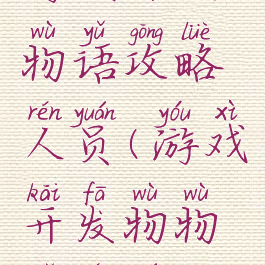 wù yǔ gōng lüè
物语攻略
rén yuán yóu xì
人员(游戏
kāi fā wù wù
开发物物